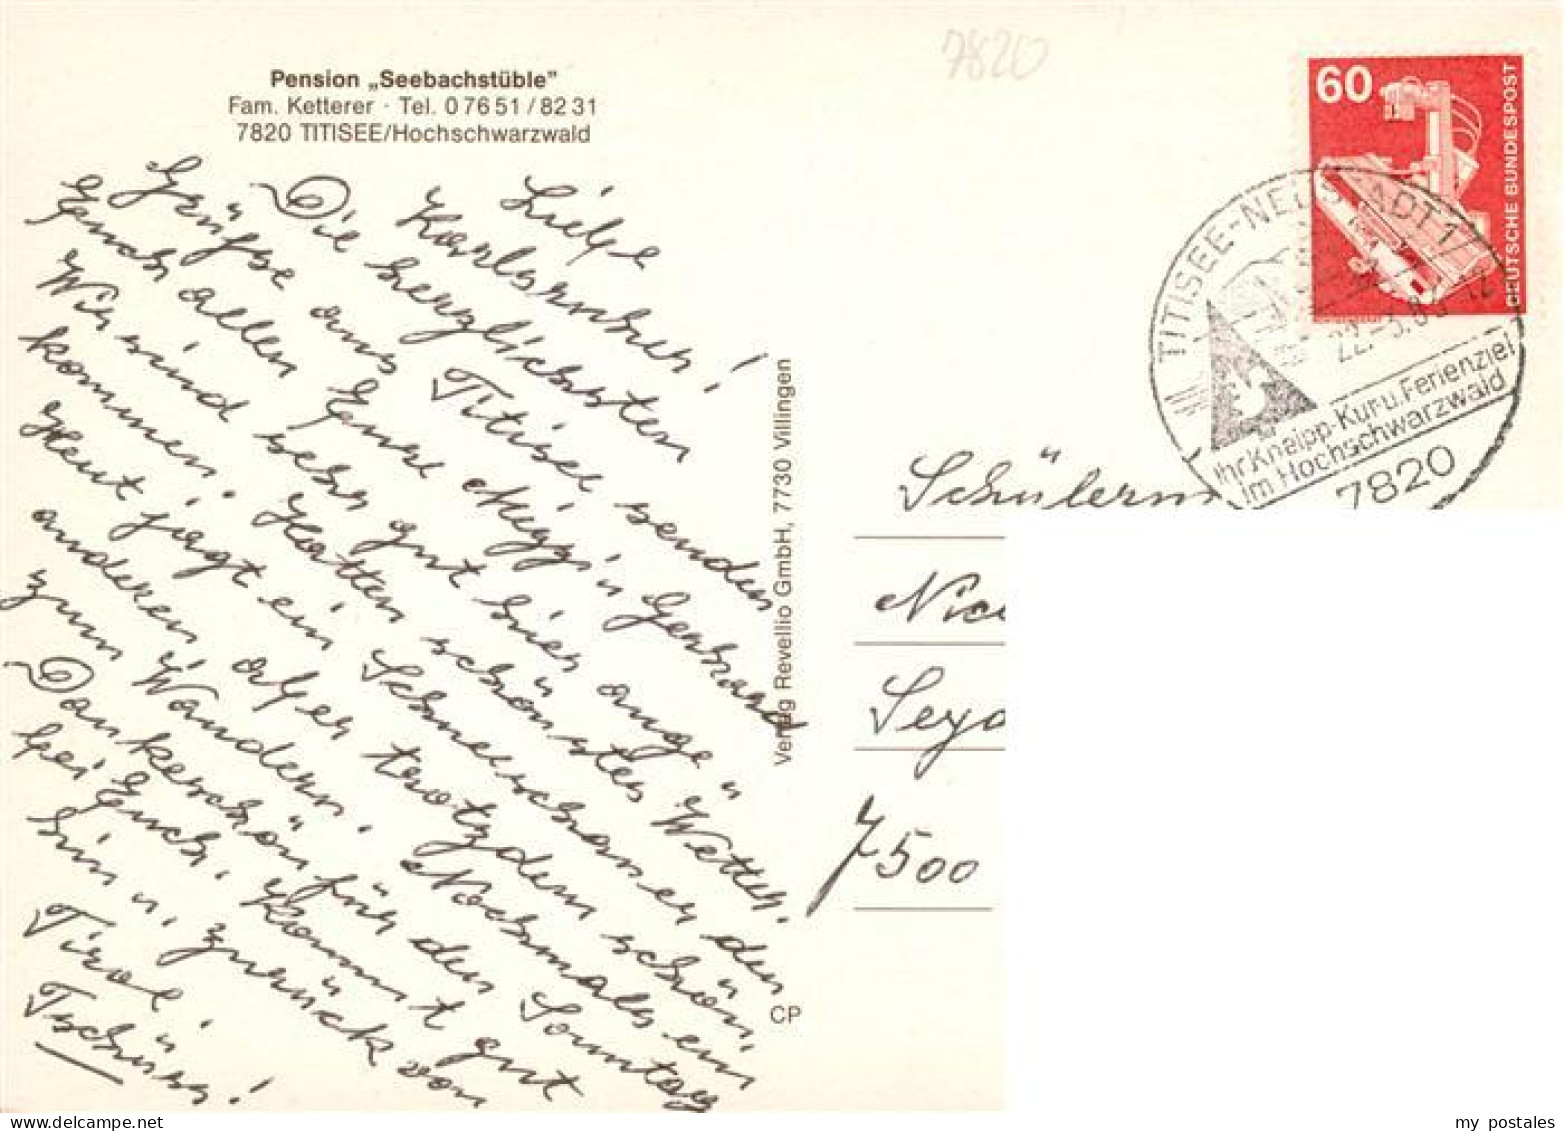 Pension „Seebachstüble”
Fam. Ketterer · Tel. 0 76 51 / 82 31
7820 TITISEE/Hochschwarzwald
Liebe
Karlsruher!
Die herzlichsten
Grüße aus Titisee senden
Euch allen Eure Mizzi u Gerhard
Wir sind sehr gut hier ange"
kommen. Hatten schönstes Wetter.
Heut jagt ein Schneeschauer den
anderen aber trotzdem schön,
zum Wandern. Nochmals ein
Dankeschön für den Sonntag
bei Euch. Kommt gut
hin u. zurück von
Tirol.
Tschüss!
Verlag Revellio GmbH, 7730 Villingen
CP
7820
60
DEUTSCHE BUNDESPOST
TITISEE-NEUSTADT 1
22.-3.
Ihr Kneipp-Kur u. Ferienziel
im Hochschwarzwald
7820
7500